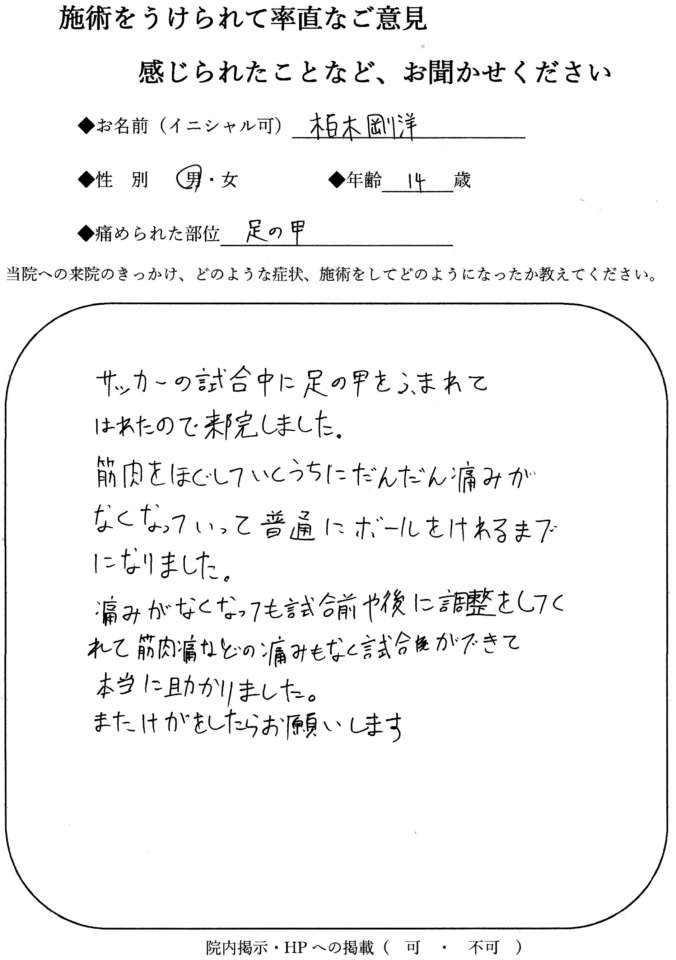 施術をうけられて率直なご意見
感じられたことなど、お聞かせください
◆お名前（イニシャル可） 柏木剛洋
◆性　別　男・女　◆年齢 14 歳
◆痛められた部位 足の甲
当院への来院のきっかけ、どのような症状、施術をしてどのようになったか教えてください。
サッカーの試合中に足の甲をふまれて
はれたので来院しました。
筋肉をほぐしていくうちにだんだん痛みが
なくなっていって普通にボールをけれるまで
になりました。
痛みがなくなっても試合前や後に調整をしてく
れて筋肉痛などの痛みもなく試合ができて
本当に助かりました。
またけがをしたらお願いします
院内掲示・HPへの掲載（　可　・　不可　）